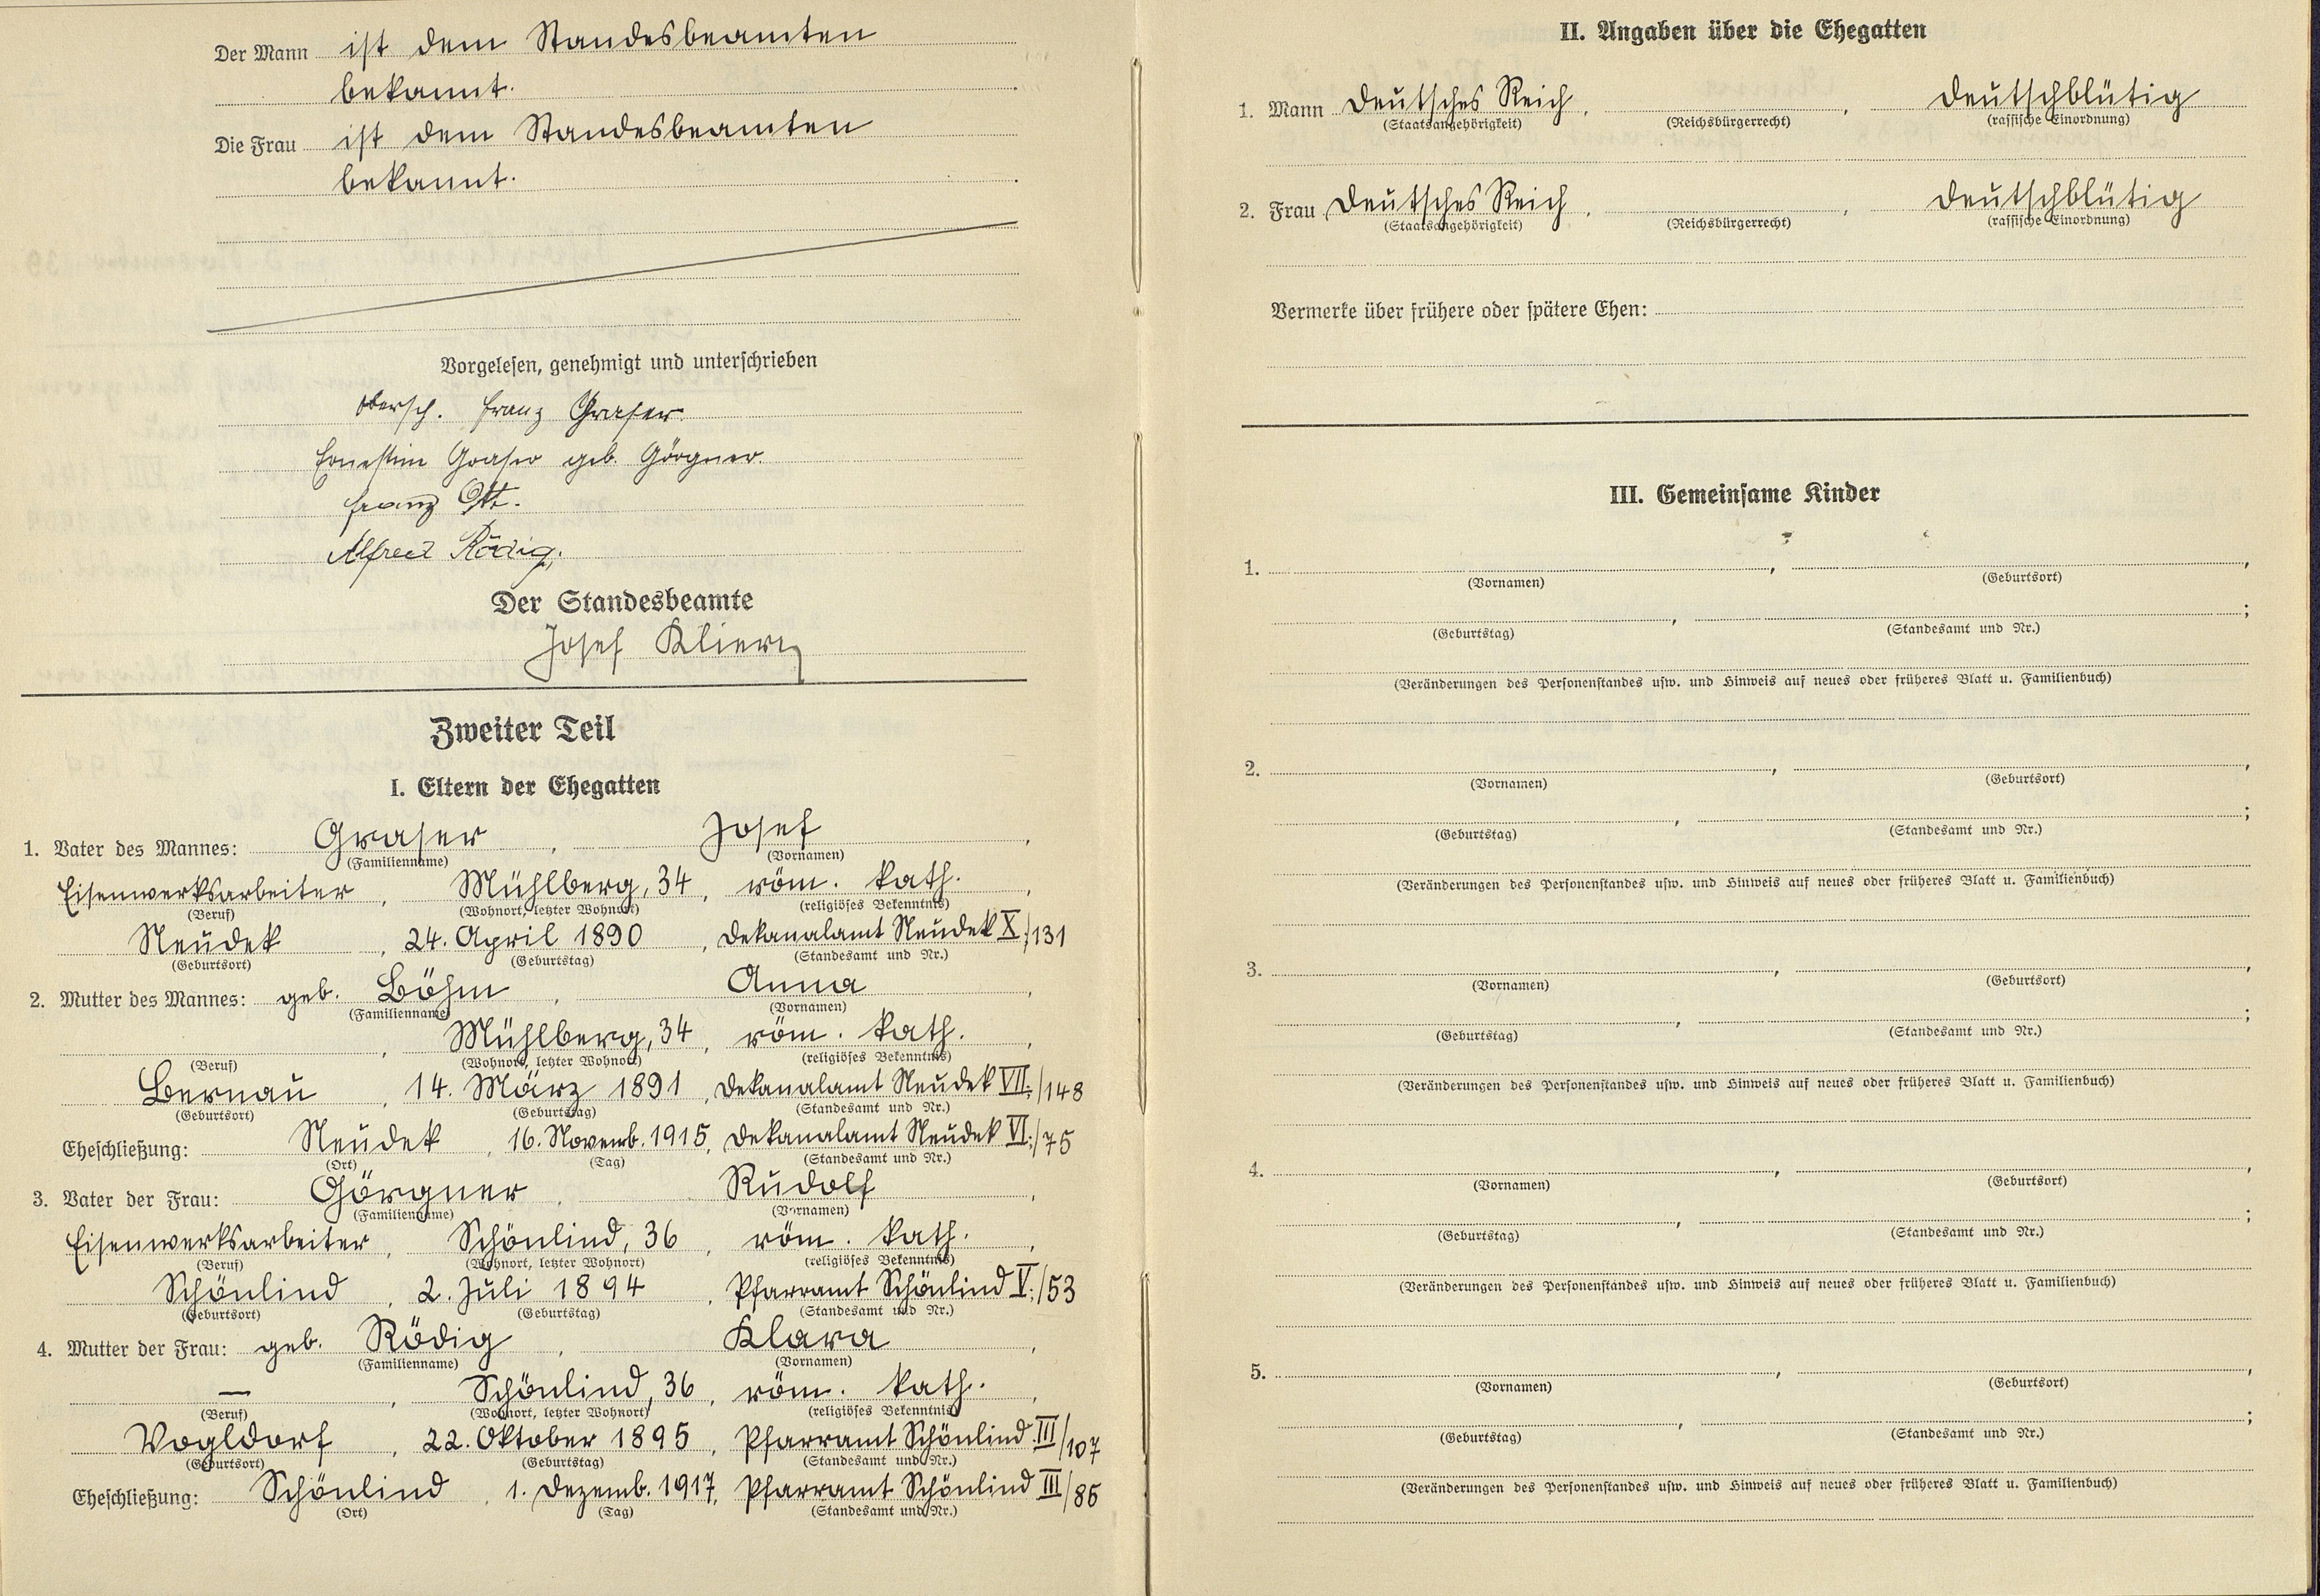 Der Mann ist dem Standesbeamten
bekannt.
Die Frau ist dem Standesbeamten
bekannt.
Vorgelesen, genehmigt und unterschrieben
Obersch. Franz Graser.
Ernestine Graser geb. Görgner.
Franz Ott.
Alfred Rödig.
Der Standesbeamte
Josef Klier
Zweiter Teil
I. Eltern der Ehegatten
1. Vater des Mannes: Graser, Josef,
(Familienname) (Vornamen)
Eisenwerksarbeiter, Mühlberg, 34, röm. kath.,
(Beruf) (Wohnort, letzter Wohnort) (religiöses Bekenntnis)
Neudek, 24. April 1890, Dekanalamt Neudek X./131
(Geburtsort) (Geburtstag) (Standesamt und Nr.)
2. Mutter des Mannes: geb. Böhm, Anna,
(Familienname) (Vornamen)
, Mühlberg, 34, röm. kath.,
(Beruf) (Wohnort, letzter Wohnort) (religiöses Bekenntnis)
Bernau, 14. März 1891, Dekanalamt Neudek VII./148
(Geburtsort) (Geburtstag) (Standesamt und Nr.)
Eheschließung: Neudek, 16. Novemb. 1915, Dekanalamt Neudek VI./75
(Ort) (Tag) (Standesamt und Nr.)
3. Vater der Frau: Görgner, Rudolf,
(Familienname) (Vornamen)
Eisenwerksarbeiter, Schönlind, 36, röm. kath.,
(Beruf) (Wohnort, letzter Wohnort) (religiöses Bekenntnis)
Schönlind, 2. Juli 1894, Pfarramt Schönlind V./53
(Geburtsort) (Geburtstag) (Standesamt und Nr.)
4. Mutter der Frau: geb. Rödig, Klara,
(Familienname) (Vornamen)
—, Schönlind, 36, röm. kath.,
(Beruf) (Wohnort, letzter Wohnort) (religiöses Bekenntnis)
Vogldorf, 22. Oktober 1895, Pfarramt Schönlind III/107
(Geburtsort) (Geburtstag) (Standesamt und Nr.)
Eheschließung: Schönlind, 1. Dezemb. 1917, Pfarramt Schönlind III/86
(Ort) (Tag) (Standesamt und Nr.)
II. Angaben über die Ehegatten
1. Mann Deutsches Reich, , deutschblütig
(Staatsangehörigkeit) (Reichsbürgerrecht) (rassische Einordnung)
2. Frau Deutsches Reich, , deutschblütig
(Staatsangehörigkeit) (Reichsbürgerrecht) (rassische Einordnung)
Vermerke über frühere oder spätere Ehen:
III. Gemeinsame Kinder
1. , ,
(Vornamen) (Geburtsort)
, ;
(Geburtstag) (Standesamt und Nr.)
(Veränderungen des Personenstandes usw. und Hinweis auf neues oder früheres Blatt u. Familienbuch)
2. , ,
(Vornamen) (Geburtsort)
, ;
(Geburtstag) (Standesamt und Nr.)
(Veränderungen des Personenstandes usw. und Hinweis auf neues oder früheres Blatt u. Familienbuch)
3. , ,
(Vornamen) (Geburtsort)
, ;
(Geburtstag) (Standesamt und Nr.)
(Veränderungen des Personenstandes usw. und Hinweis auf neues oder früheres Blatt u. Familienbuch)
4. , ,
(Vornamen) (Geburtsort)
, ;
(Geburtstag) (Standesamt und Nr.)
(Veränderungen des Personenstandes usw. und Hinweis auf neues oder früheres Blatt u. Familienbuch)
5. , ,
(Vornamen) (Geburtsort)
, ;
(Geburtstag) (Standesamt und Nr.)
(Veränderungen des Personenstandes usw. und Hinweis auf neues oder früheres Blatt u. Familienbuch)